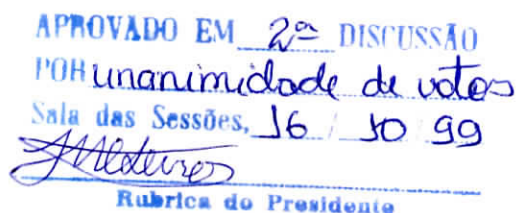 APROVADO EM 2ª DISCUSSÃO
POR unanimidade de votos
Sala das Sessões, 16 / 10 99
Medeiros
Rubrica do Presidente